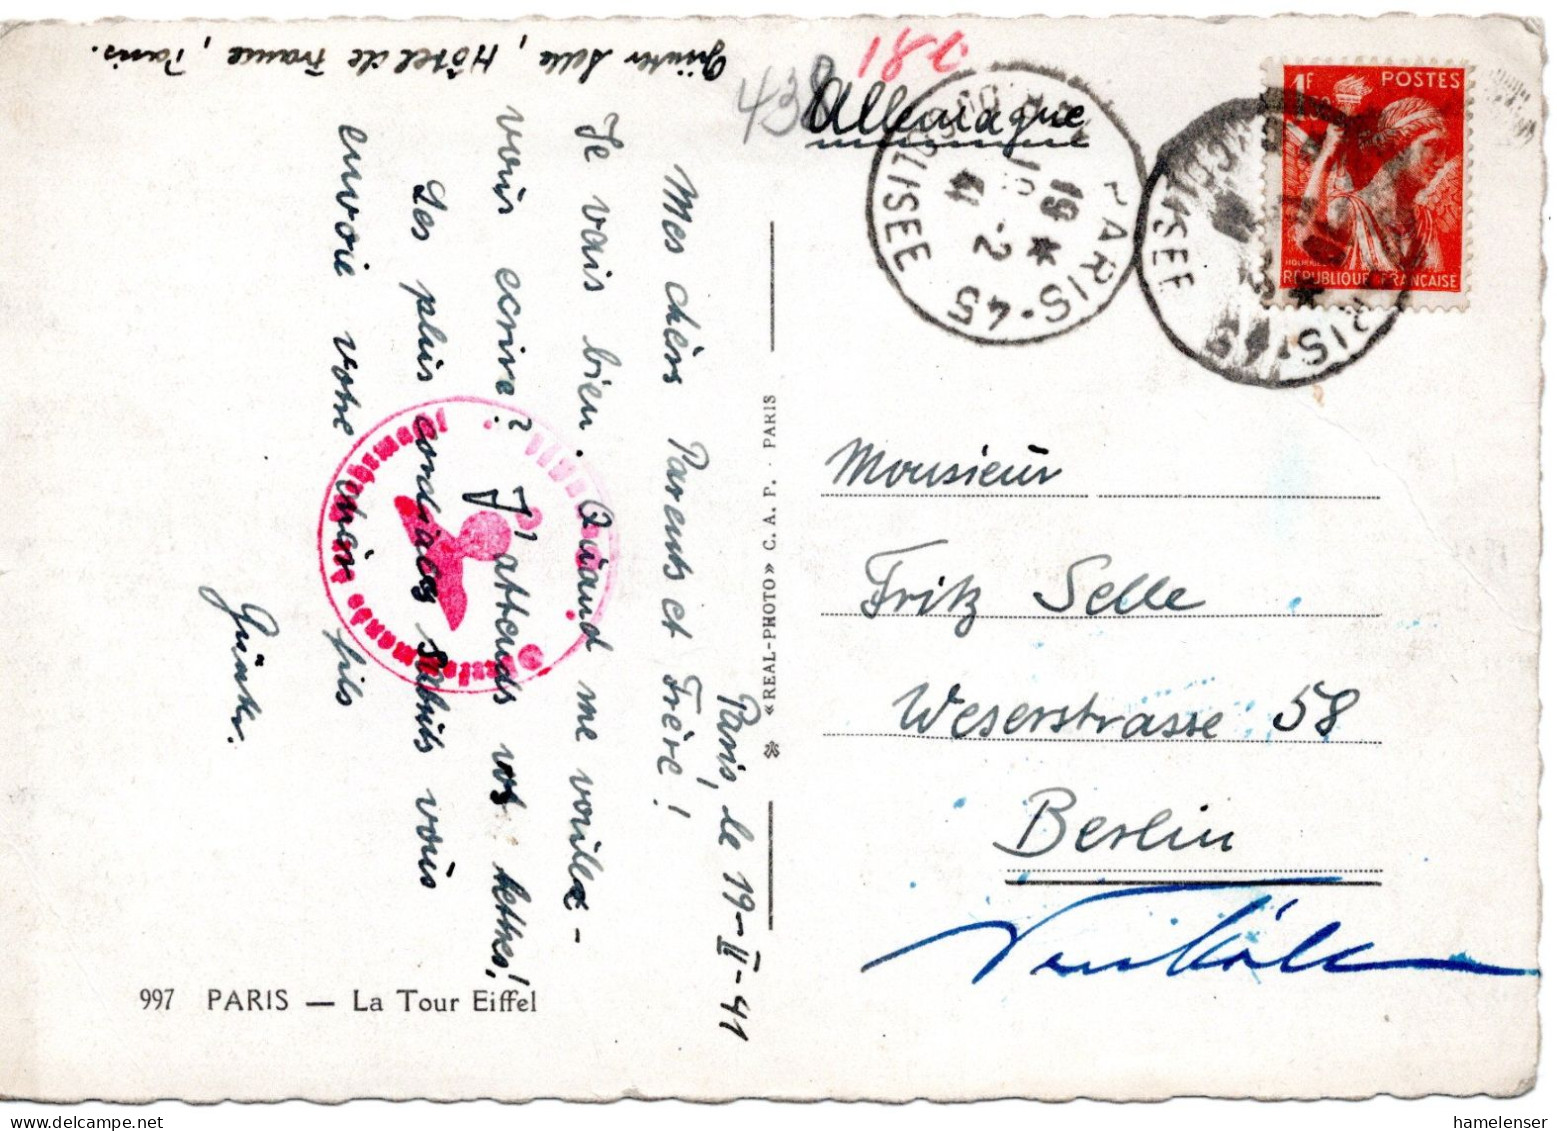 Günter Selle, Hôtel de France, Paris.
Paris, le 19-II-41
Mes chèrs Parents et Frère!
Je vais bien. Quand me voulez-
vous ecrire? J'attends vos lettres!
Les plus cordiaces saluts vous
envoie votre cher fils
Günter.
997 PARIS — La Tour Eiffel
«REAL-PHOTO» C. A. P. · PARIS
438
180
Allemagne
PARIS·45
19
2
41
1F POSTES
REPUBLIQUE FRANÇAISE
Monsieur
Fritz Selle
Weserstrasse 58
Berlin
hamelenser